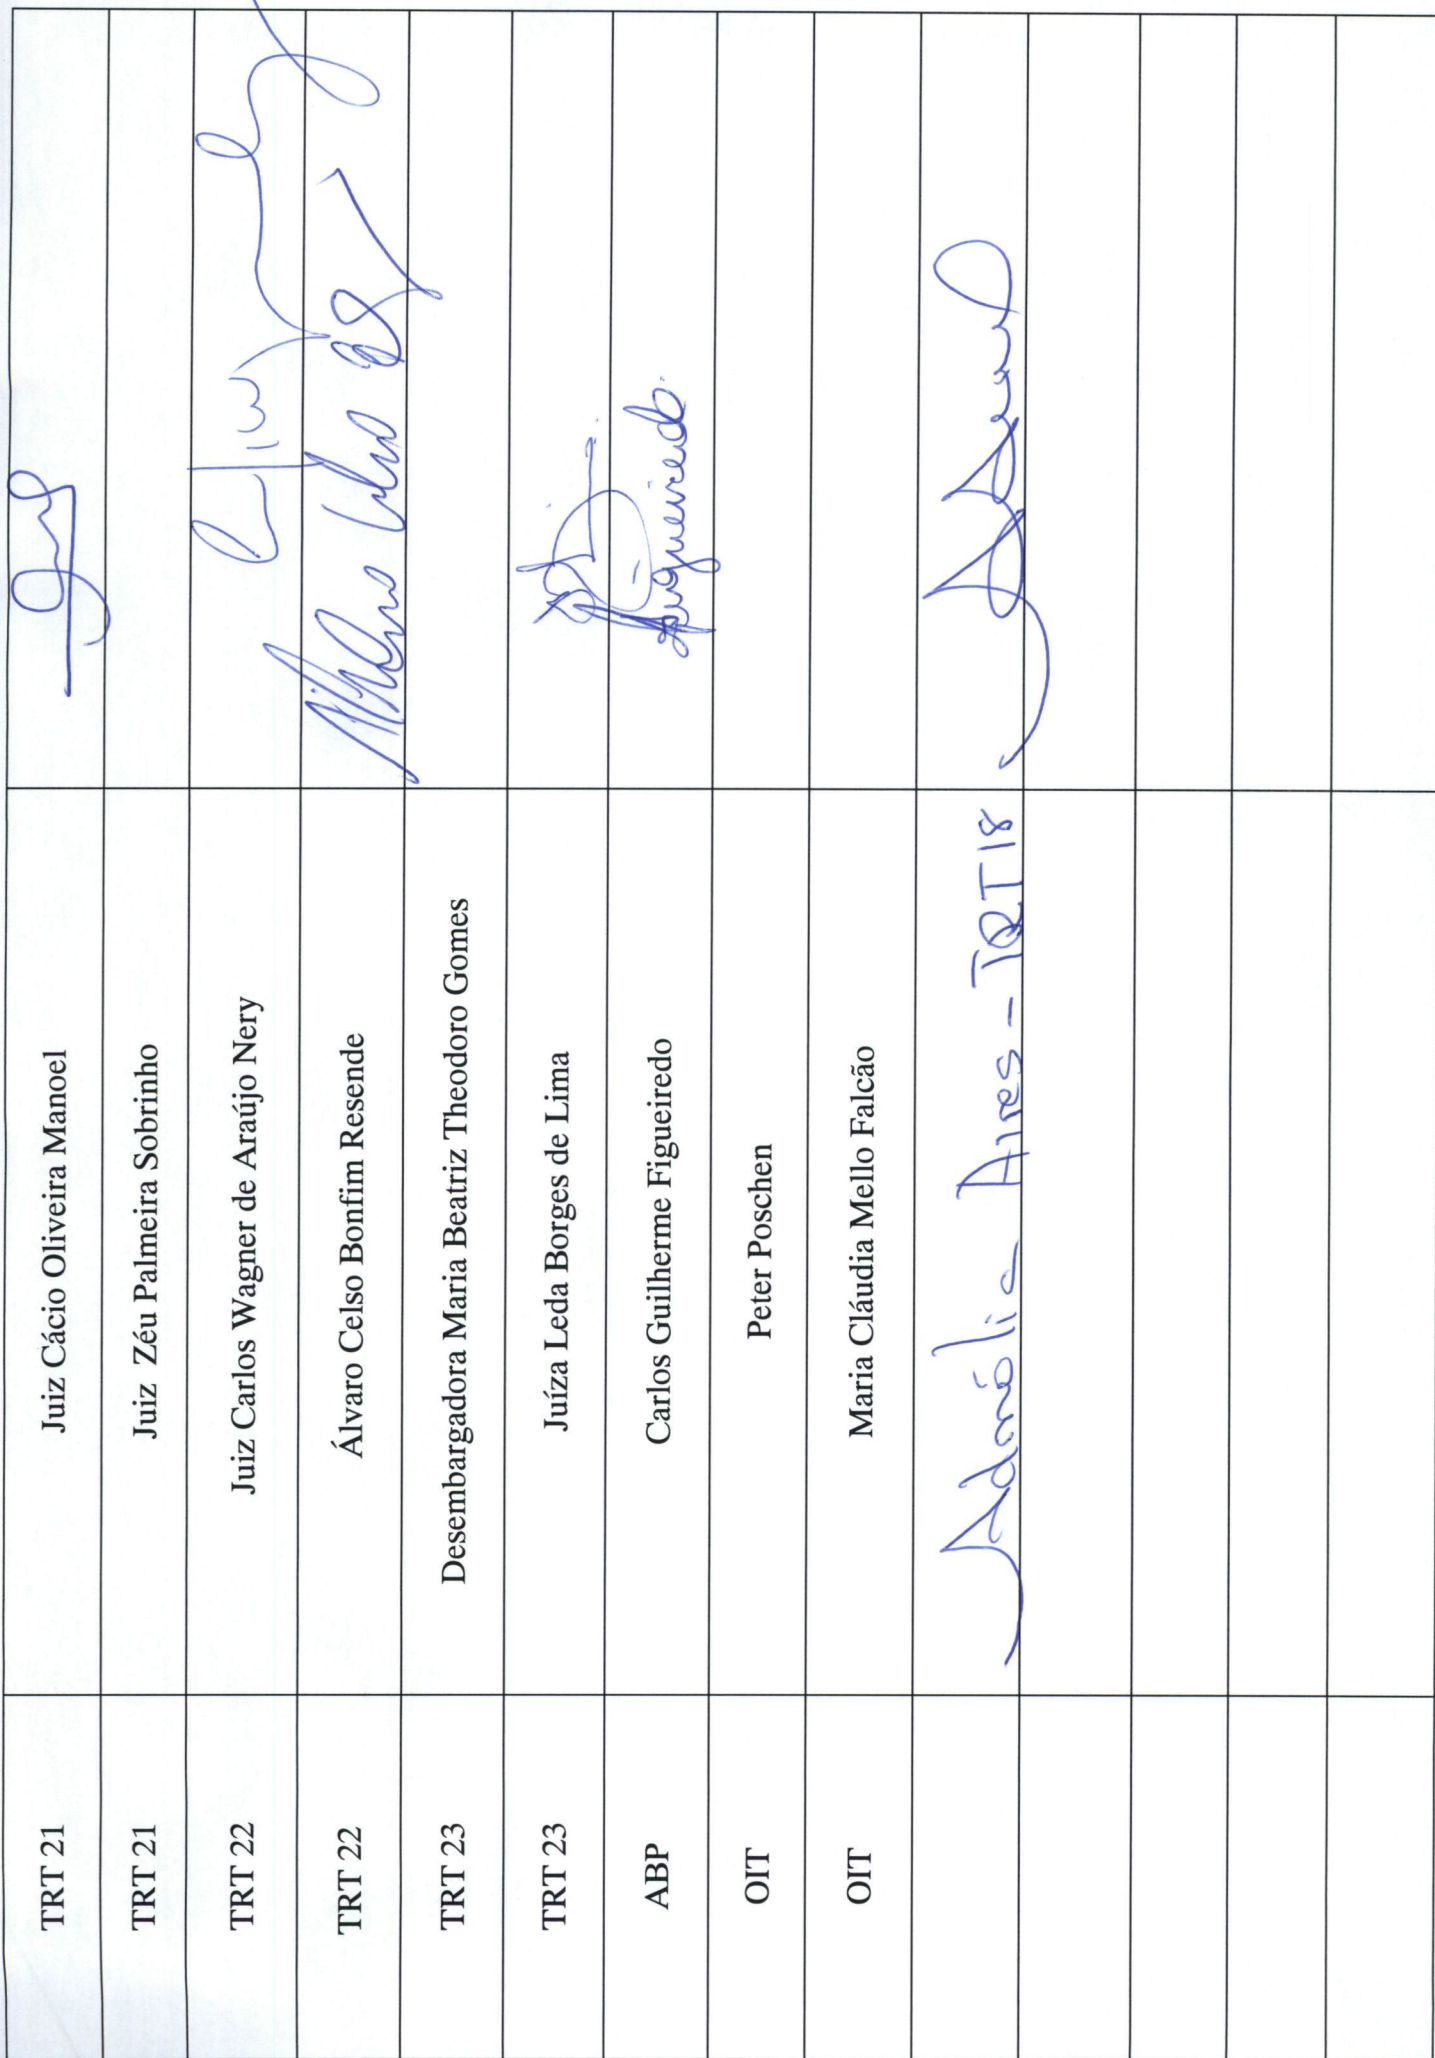 TRT 21 Juiz Cácio Oliveira Manoel
TRT 21 Juiz Zéu Palmeira Sobrinho
TRT 22 Juiz Carlos Wagner de Araújo Nery
TRT 22 Álvaro Celso Bonfim Resende
TRT 23 Desembargadora Maria Beatriz Theodoro Gomes
TRT 23 Juíza Leda Borges de Lima
ABP Carlos Guilherme Figueiredo Figueiredo
OIT Peter Poschen
OIT Maria Cláudia Mello Falcão
Aires - TRT 18